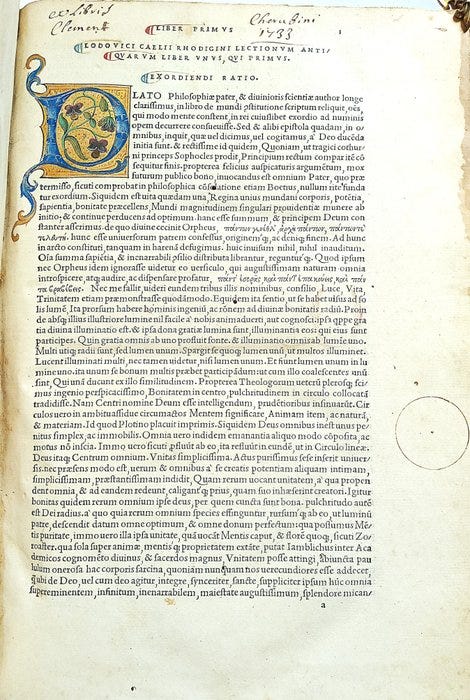 ex libris
Clement
Cherubini
1733
LIBER PRIMVS
1
LODOVICI CAELII RHODIGINI LECTIONVM ANTI/
QVARVM LIBER VNVS, QVI PRIMVS.
EXORDIENDI RATIO.
PLATO Philosophiæ pater, & diuinioris scientiæ author longe
clarissimus, in libro de mundi ꝓstitutione scriptum reliquit, oēs,
qui modo mente constent, in rei cuiuslibet exordio ad numinis
opem decurrere consueuisse. Sed & alibi epistola quadam, in o/
mnibus, inquit, quæ uel dicimus, uel cogitamus, a' Deo ducēda
initia sunt. & rectissime id quidem, Quoniam, ut tragici cothur/
ni princeps Sophocles prodit, Principium rectum comparitē cō
sequitur finis. propterea felicius auspicaturi argumētum, mox
futurum publico bono, inuocandus est omnium Pater, quo præ
termisso, sicuti comprobat in philosophica cōsolatione etiam Boetus, nullum rite funda
tur exordium. Siquidem est uita quædam una, Regina uniuersi mundani corporis, potētia,
sapientia, bonitate præcellens, Mundi magnitudinem singulari prouidentiæ munere ab
initio, & continue perducens ad optimum. hanc esse summum, & principem Deum con
stanter asserimus. de quo diuine cecinit Orpheus,
hunc esse uniuersorum patrem confessus, originemq;, ac deniq; finem. Ad hunc
in arcto constituti, tanquam in harena desigimus. huic inuisum nihil, nihil inauditum.
Oīa summa sapiētia, & inenarrabili ꝓsilio distributa librantur, reguntur q;. Quod ipsum
nec Orpheus idem ignorasse uidetur eo uersiculo, qui augustissimam naturam omnia
introspicere, atq; audire, ac dispensare profatur,
Nec me fallit, uideri eundem tribus illis nominibus, consilio, Luce, Vita,
Trinitatem etiam præmonstrasse quodāmodo. Equidem ita sentio, ut se habet uisus ad so
lis lumē, Ita prorsum habere hominis ingenii, acrōnem ad diuinæ bonitatis radiū. Proin
de absq; illius illustratiore lumine nil facile a' nobis animaduerti, aut cognosci: ipsa q̄ppe gra
tia diuina illuminatio est. & ipsa dona gratiæ lumina sunt, illuminantia eos: qui eius sunt
participes. Quin gratia omnis ab uno profluit fonte. & illuminatio omnis ab lumīe uno.
Multi utiq; radii sunt, sed lumen unum. Spargit se quoq; lumen unū, ut multos illuminet.
Lucent illuminati multi, nec tamen uidetur, nisi lumen unum. Et fiunt lumen unum in lu
mine uno. ita unum se bonum multis præbet participādum: ut cum illo coalescentes unū
sint, Qui unā ducunt ex illo similitudinem. Propterea Theologorum ueterū plerosq; sci/
mus ingenio perspicacissimo, Bonitatem in centro, pulchritudinem in circulo collocatā
tradidisse. Nam Centri nomine Deum esse intelligendum, prudētioribus insinuarūt. Cir
culos uero in ambitu assidue circumactos Mentem significare, Animam item, ac naturā,
& materiam. Id quod Plotino placuit imprimis. Siquidem Deus omnibus inest unus pe/
nitus simplex, ac immobilis. Omnia uero indidem emanantia aliquo modo cōposita, ac
motus nō inscia. Immo uero sicuti, ꝓfiuūt ab eo, ita resfluūt in eundē, ut in Circulo lineæ.
Deus itaq; Centrum omnium. Vnitas simplicissima. Actus purissimus sese inserit uniuer/
sis. nec præsens modo est, uerum & omnibus a' se creatis potentiam aliquam intimam,
simplicissimam, præstantissimam indidit, Quam rerum uocant unitatem, a' qua propen
dent omnia, & ad eandem redeunt, caligant q; prius, quam suo inhæserint creatori. Igitur
bonitas quidem rerum omnium ipse deus, per quem cuncta sunt bona. pulchritudo autē
est Dei radius. a' quo quia rerum omnium species effinguntur, rursumq; ab eo, ut luminū
patre, descendit datum omne optimum, & omne donum perfectum: qua possumus Mē/
tis puritate, immo uero illa ipsa unitate, quā uocāt Mentis caput, & flore quoq;, sicuti Zo/
roaster, qua sola super animæ, mentisq; proprietatem extāte, putat Iamblichus inter Aca
demicos cognomēto diuinus, & sacerdos magnus, Vnitatem posse attingi, adiuncta pau
lulum onerosa hac corporis sarcina, quoniam nunquam nos uerecundiores esse addecet,
qubi de Deo, uel cum deo agitur, integre, synceriter, sancte, suppliciter ipsum hūc omnia
supereminentem, infinitum, inenarrabilem, maiestate augustissimum, splendore mican/
a